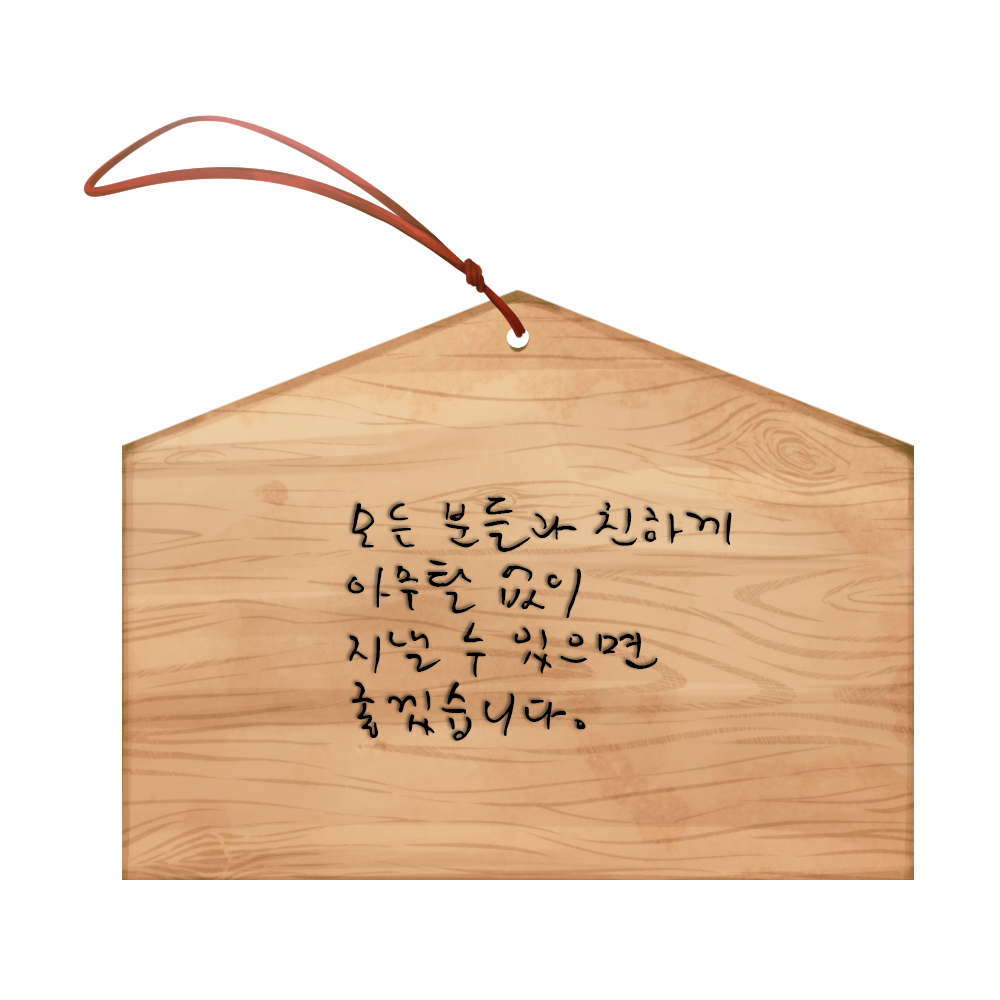 모든 분들과 친하게
아무탈 없이
지낼 수 있으면
좋겠습니다.